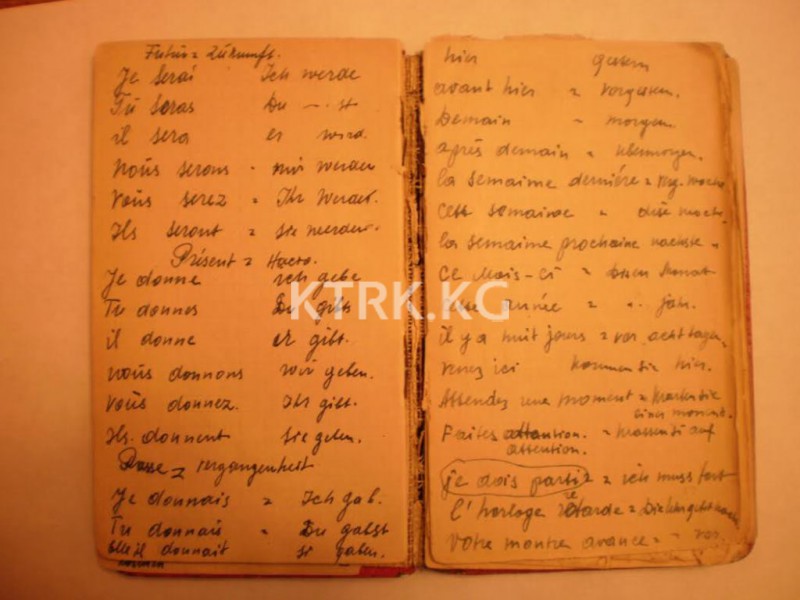 Futur = Zukunft.
Je serai Ich werde
Tu seras Du — . st
il sera er wird.
Nous serons - wir werden
Vous serez = Ihr werdet.
Ils seront = sie werden.
Présent = Наст.
Je donne ich gebe
Tu donnes Du gibst
il donne er gibt.
nous donnons wir geben.
Vous donnez. Ihr gibt.
Ils. donnent sie geben.
= vergangenheit
Je donnais = Ich gab.
Tu donnais = Du gabst
il donnait si gaben.
hier gestern
avant hier = vorgestern.
Demain - morgen.
après demain = übermorgen.
la semaime dernière =
cett semaine = diese woche
la semaime prochaine nächste "
Ce Mois-ci = diesen Monat
année = " . jahr.
il y a huit jours = vor acht tagen,
venez ici kommen sie hier.
Attendez une moment = Warten sie
einen moment.
Faites attantion. = auf
attention.
je dois partir = ich muss fort
l'horloge retarde = Die Uhr geht
Votre montre avance = " vor.
KTRK.KG